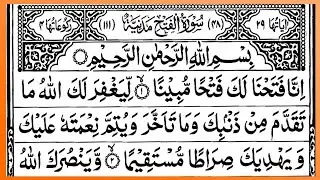 اٰيَاتُهَا ٢٩ (٤٨) سُوْرَةُ الْفَتْحِ مَدَنِيَّةٌ (١١١) رُكُوْعَاتُهَا ٤
بِسْمِ اللّٰهِ الرَّحْمٰنِ الرَّحِيْمِ ○
اِنَّا فَتَحْنَا لَكَ فَتْحًا مُّبِيْنًا ۙ﴿۱﴾ لِّيَغْفِرَ لَكَ اللّٰهُ مَا
تَقَدَّمَ مِنْ ذَنْۢبِكَ وَمَا تَاَخَّرَ وَيُتِمَّ نِعْمَتَهٗ عَلَيْكَ
وَ يَهْدِيَكَ صِرَاطًا مُّسْتَقِيْمًا ۙ﴿۲﴾ وَّيَنْصُرَكَ اللّٰهُ